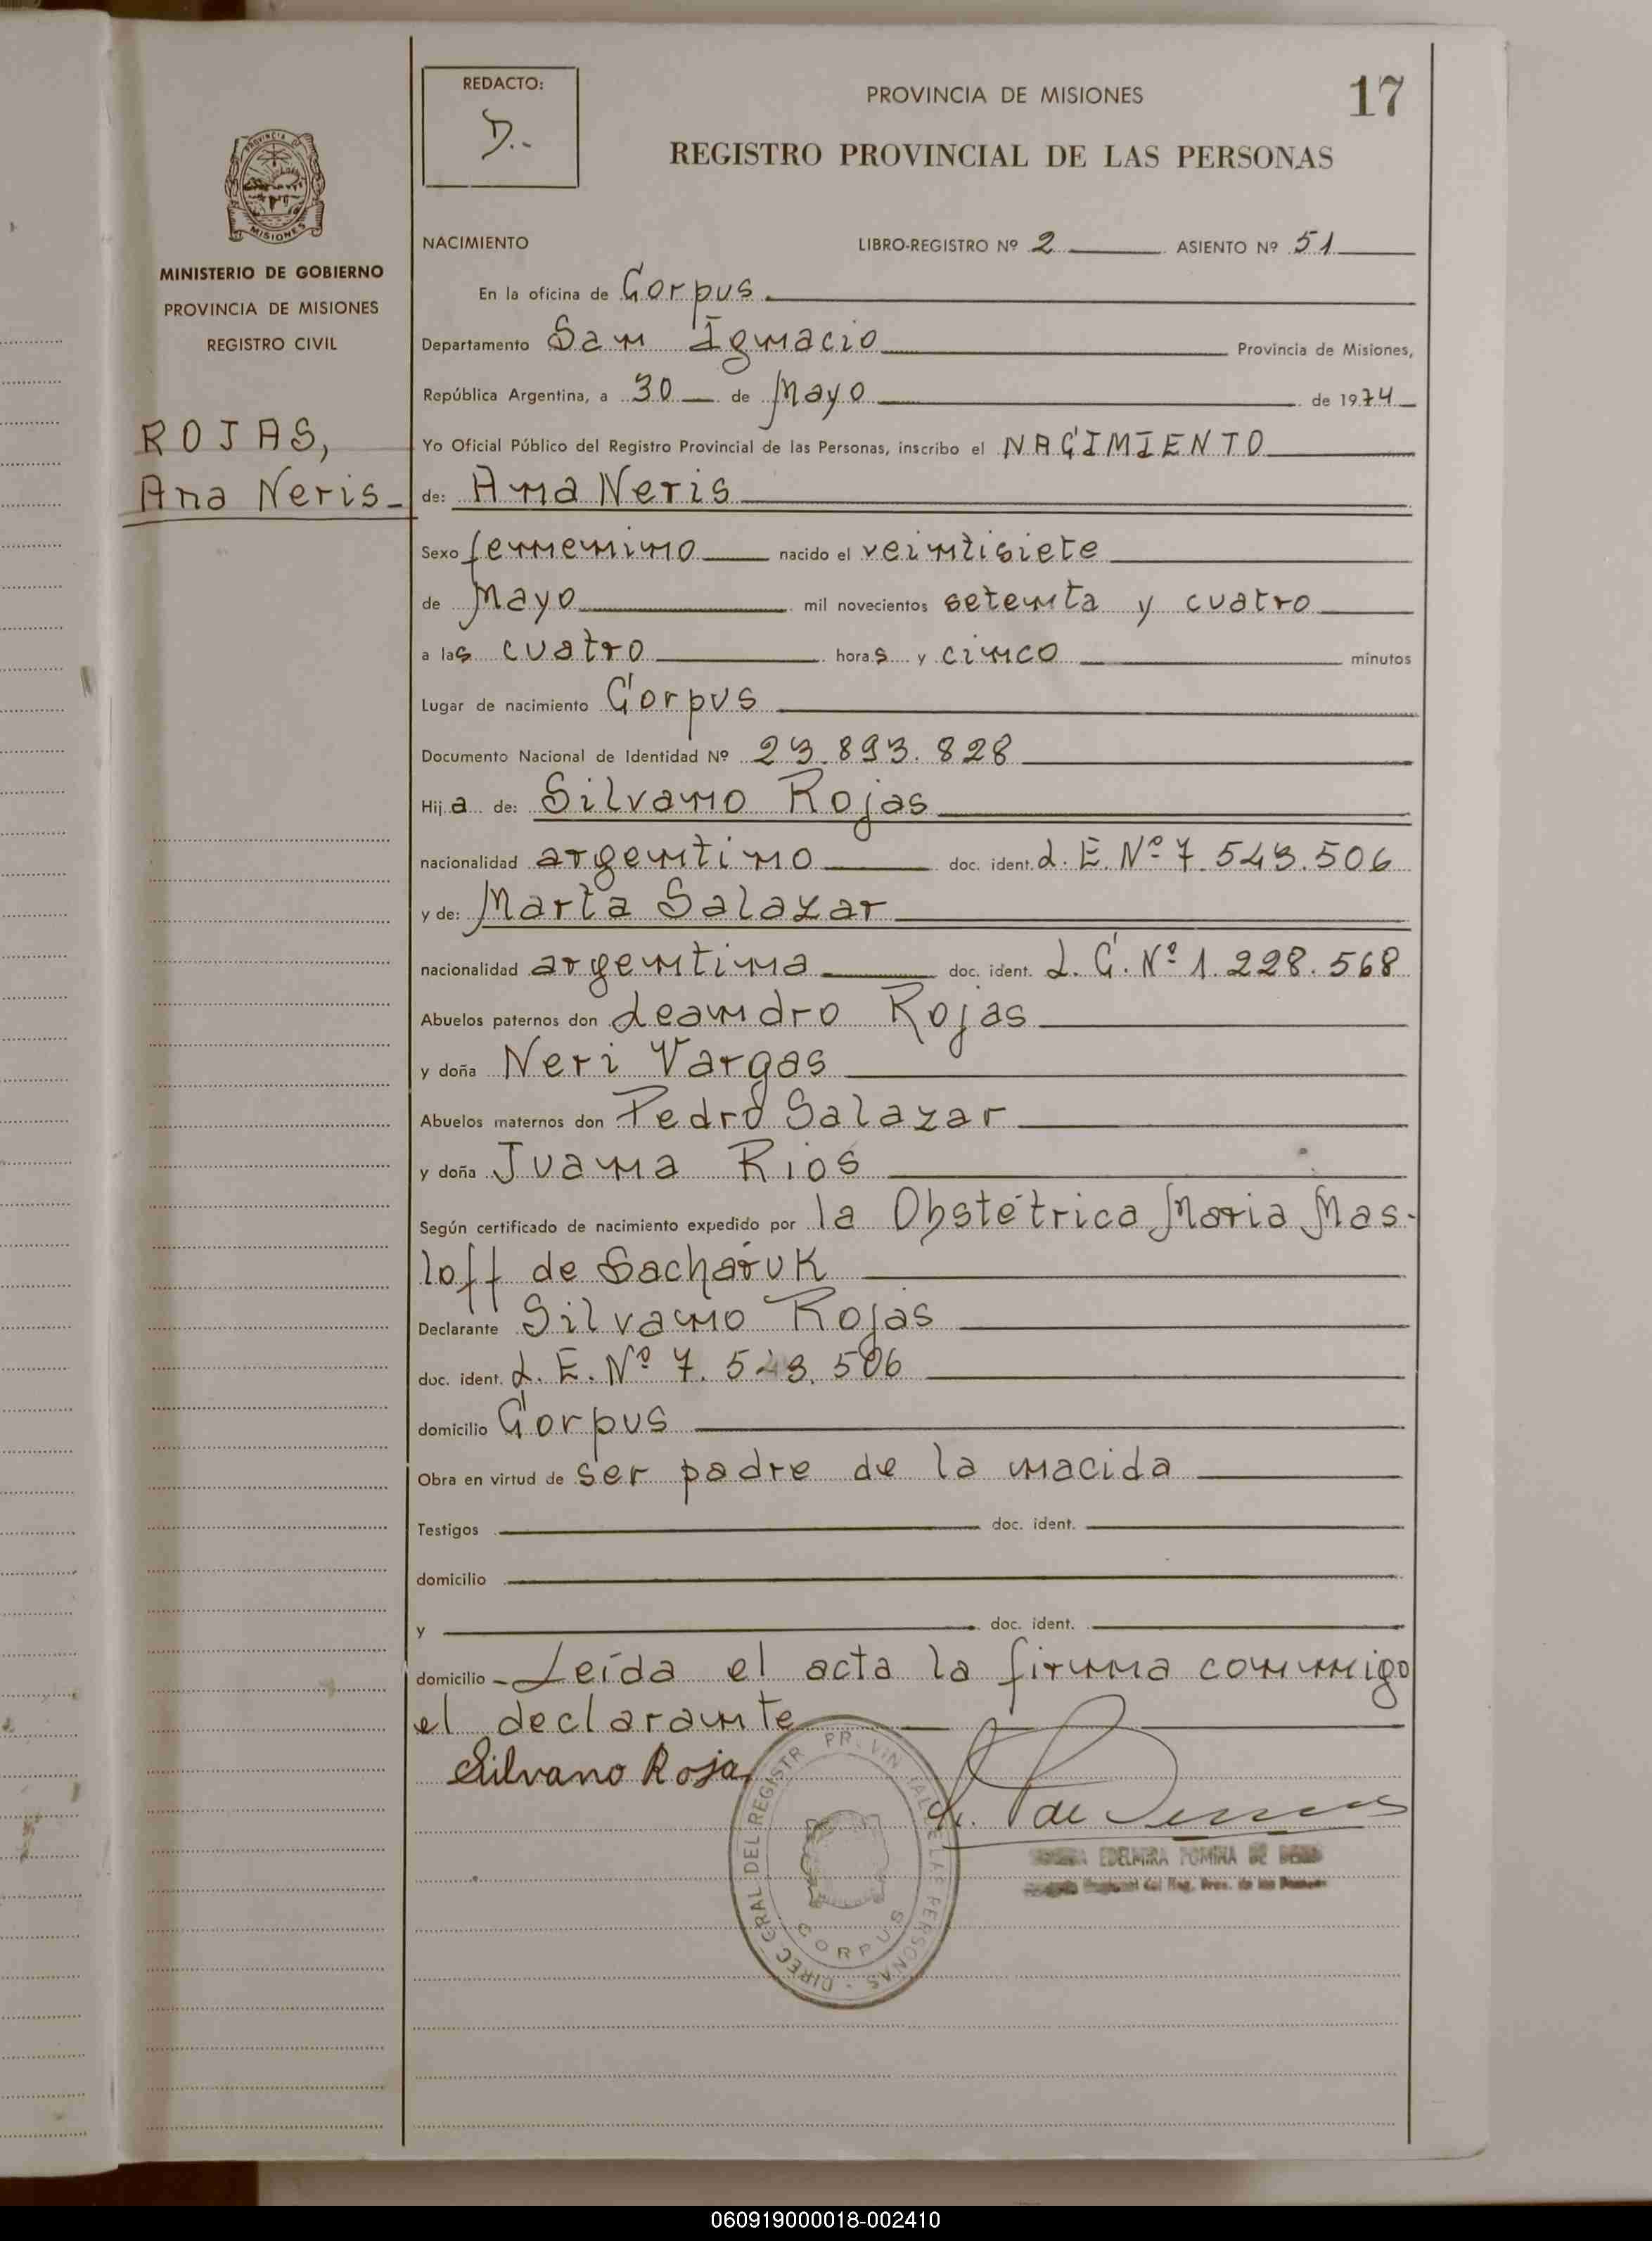 REDACTO:
D..
PROVINCIA DE MISIONES
17
REGISTRO PROVINCIAL DE LAS PERSONAS
MISIONES
MINISTERIO DE GOBIERNO
PROVINCIA DE MISIONES
REGISTRO CIVIL
ROJAS,
Ana Neris
NACIMIENTO LIBRO-REGISTRO Nº 2 ASIENTO Nº 51
En la oficina de Corpus
Departamento San Ignacio Provincia de Misiones,
República Argentina, a 30 de Mayo de 1974
Yo Oficial Público del Registro Provincial de las Personas, inscribo el NACIMIENTO
de: Ana Neris
Sexo femenino nacido el veintisiete
de Mayo mil novecientos setenta y cuatro
a las cuatro horas y cinco minutos
Lugar de nacimiento Corpus
Documento Nacional de Identidad Nº 23.893.828
Hija de: Silvano Rojas
nacionalidad argentino doc. ident. L.E. Nº 7.543.506
y de: Marta Salazar
nacionalidad argentina doc. ident. L.C. Nº 1.228.568
Abuelos paternos don Leandro Rojas
y doña Neri Vargas
Abuelos maternos don Pedro Salazar
y doña Juana Rios
Según certificado de nacimiento expedido por la Obstétrica Maria Mas-
loff de Sacharuk
Declarante Silvano Rojas
doc. ident. L.E. Nº 7.543.506
domicilio Corpus
Obra en virtud de ser padre de la nacida
Testigos doc. ident.
domicilio
y doc. ident.
domicilio Leída el acta la firma conmigo
el declarante
Silvano Rojas
EDELMIRA POMINA DE
DIREC GRAL DEL REGISTR PR VIN IAL E LAS PERSONAS
CORPUS
060919000018-002410